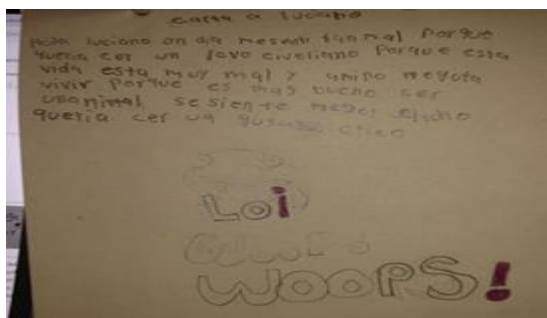 carta a luciano
Hola luciano un dia mesenti tan mal porque
queria cer un lovo civeliano porque esta
vida esta muy mal y ami no me guta
vivir porque es mas bueno ser
un animal se siente mejor
queria cer un gusano
Loi
WOOPS!